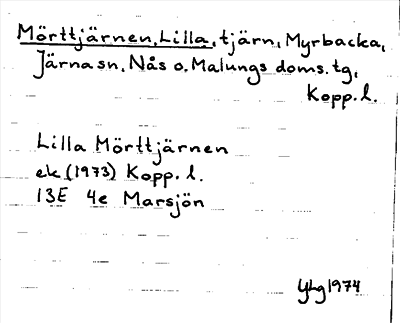 Mörttjärnen, Lilla, tjärn, Myrbacka,
Järna sn, Nås o. Malungs doms. tg,
Kopp. l.
Lilla Mörttjärnen
ek (1973) Kopp. l.
13E 4e Marsjön
YLg 1974